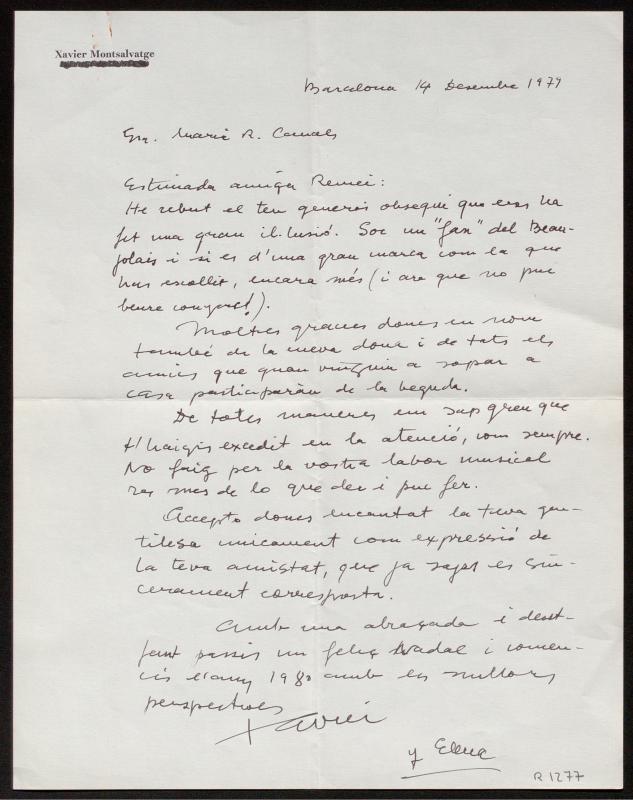 Xavier Montsalvatge
Barcelona 14 Desembre 1979
Sra. Maria R. Canals
Estimada amiga Remei:
He rebut el teu generós obsequi que ens ha
fet una gran il·lusió. Soc un "fan" del Beau-
jolais i si es d'una gran marca com la que
has escollit, encara més (i ara que no puc
beure conyac!).
Moltes gracies doncs en nom
també de la meva dona i de tots els
amics que quan vinguin a sopar a
casa participaràn de la beguda.
De totes maneres em sap greu que
t'haigis excedit en la atenció, com sempre.
No faig per la vostra labor musical
res mes de lo que dec i puc fer.
Accepto doncs encantat la teva gen-
tilesa unicament com expressió de
la teva amistat, que ja saps es sin-
cerament corresposta.
Amb una abraçada i desit-
jant passis un feliç Nadal i comen-
cis l'any 1980 amb les millors
perspectives
Xavier
y Elena
R 1277